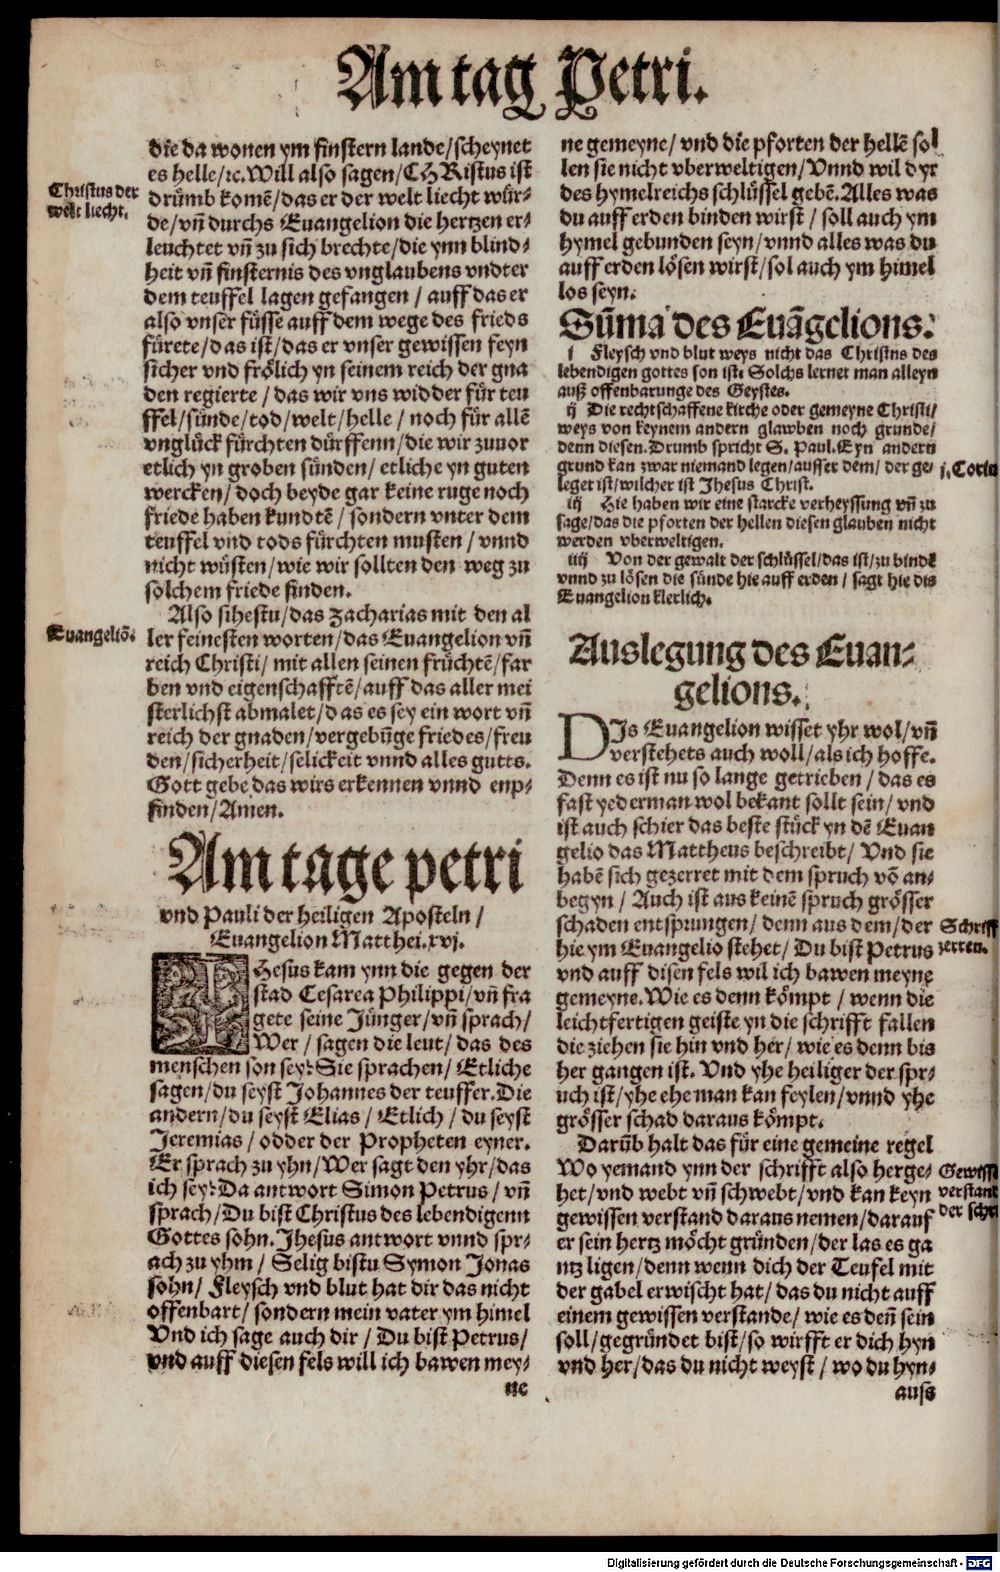 Am tag Petri.
die da wonen ym finstern lande/scheynet
es helle/ꝛc. Will also sagen/CHRistus ist
drümb komē/das er der welt liecht wür⸗
de/vñ durchs Euangelion die hertzen er⸗
leuchtet vñ zu sich brechte/die ynn blind⸗
heit vñ finsternis des vnglaubens vndter
dem teuffel lagen gefangen / auff das er
also vnser füsse auff dem wege des frieds
fürete/das ist/das er vnser gewissen feyn
sicher vnd frölich yn seinem reich der gna
den regierte / das wir vns widder für teu
ffel/sünde/tod/welt/helle / noch für allē
vnglück fürchten dürffenn/die wir zuuor
etlich yn groben sünden/ etliche yn guten
wercken/ doch beyde gar keine ruge noch
friede haben kundtē / sondern vnter dem
teuffel vnd tods fürchten musten / vnnd
nicht wüsten/wie wir sollten den weg zu
solchem friede finden.
Also sihestu/das Zacharias mit den al
ler feinesten worten/das Euangelion vñ
reich Christi/ mit allen seinen früchtē/far
ben vnd eigenschafftē/auff das aller mei
sterlichst abmalet/das es sey ein wort vñ
reich der gnaden/vergebūge friedes/freu
den/sicherheit/selickeit vnnd alles gutts.
Gott gebe das wirs erkennen vnnd enp⸗
finden/Amen.
Christus der
welt liecht.
Euangeliō.
Am tage petri
vnd Pauli der heiligen Aposteln /
Euangelion Matthei.xvj.
IHesus kam ynn die gegen der
stad Cesarea Philippi/vñ fra
gete seine Jünger/vñ sprach/
Wer / sagen die leut/ das des
menschen son sey? Sie sprachen/ Etliche
sagen/du seyst Johannes der teuffer. Die
andern/du seyst Elias / Etlich / du seyst
Jeremias / odder der Propheten eyner.
Er sprach zu yhn/Wer sagt den yhr/das
ich sey? Da antwort Simon Petrus / vñ
sprach/Du bist Christus des lebendigenn
Gottes sohn. Jhesus antwort vnnd spr⸗
ach zu yhm / Selig bistu Symon Jonas
sohn/ Fleysch vnd blut hat dir das nicht
offenbart/ sondern mein vater ym himel
Vnd ich sage auch dir / Du bist Petrus/
vnd auff diesen fels will ich bawen mey⸗
ne
ne gemeyne/ vnd die pforten der hellē sol
len sie nicht vberweltigen/Vnnd wil dyr
des hymelreichs schlüssel gebē. Alles was
du auff erden binden wirst / soll auch ym
hymel gebunden seyn/vnnd alles was du
auff erden lösen wirst/sol auch ym himel
los seyn.
Sūma des Euāgelions.
j Fleysch vnd blut weys nicht das Christus des
lebendigen gottes son ist. Solchs lernet man alleyn
auß offenbarunge des Geystes.
ij Die rechtschaffene kirche oder gemeyne Christi/
weys von keynem andern glawben noch grunde/
denn diesen. Drumb spricht S. Paul. Eyn andern
grund kan zwar niemand legen/ausser dem/ der ge⸗
leget ist/wilcher ist Jhesus Christ.
iij Hie haben wir eine starcke verheyssung vñ zu
sage/das die pforten der hellen diesen glauben nicht
werden vberweltigen.
iiij Von der gewalt der schlüssel/das ist/zu bindē
vnnd zu lösen die sünde hie auff erden / sagt hie dis
Euangelion klerlich.
j. Corin
Auslegung des Euan⸗
gelions.
DIs Euangelion wisset yhr wol/vñ
verstehets auch woll/als ich hoffe.
Denn es ist nu so lange getrieben / das es
fast yederman wol bekant sollt sein/ vnd
ist auch schier das beste stück yn dē Euan
gelio das Mattheus beschreibt/ Vnd sie
habē sich gezerret mit dem spruch vō an⸗
begyn / Auch ist aus keinē spruch grösser
schaden entsprungen/ denn aus dem/der
hie ym Euangelio stehet/ Du bist Petrus
vnd auff disen fels wil ich bawen meyne
gemeyne. Wie es denn kömpt / wenn die
leichtfertigen geiste yn die schrifft fallen
die ziehen sie hin vnd her/ wie es denn bis
her gangen ist. Vnd yhe heiliger der spr⸗
uch ist/yhe ehe man kan feylen/vnnd yhe
grösser schad daraus kömpt.
Darūb halt das für eine gemeine regel
Wo yemand ynn der schrifft also herge⸗
het/vnd webt vñ schwebt/vnd kan keyn
gewissen verstand daraus nemen/darauf
er sein hertz möcht gründen/der las es ga
ntz ligen/denn wenn dich der Teufel mit
der gabel erwischt hat/das du nicht auff
einem gewissen verstande/ wie es deñ sein
soll/gegründet bist/so wirfft er dich hyn
vnd her/das du nicht weyst / wo du hyn⸗
auss
Schriff
zerren.
Gewiss
verstand
der schri
Digitalisierung gefördert durch die Deutsche Forschungsgemeinschaft - DFG